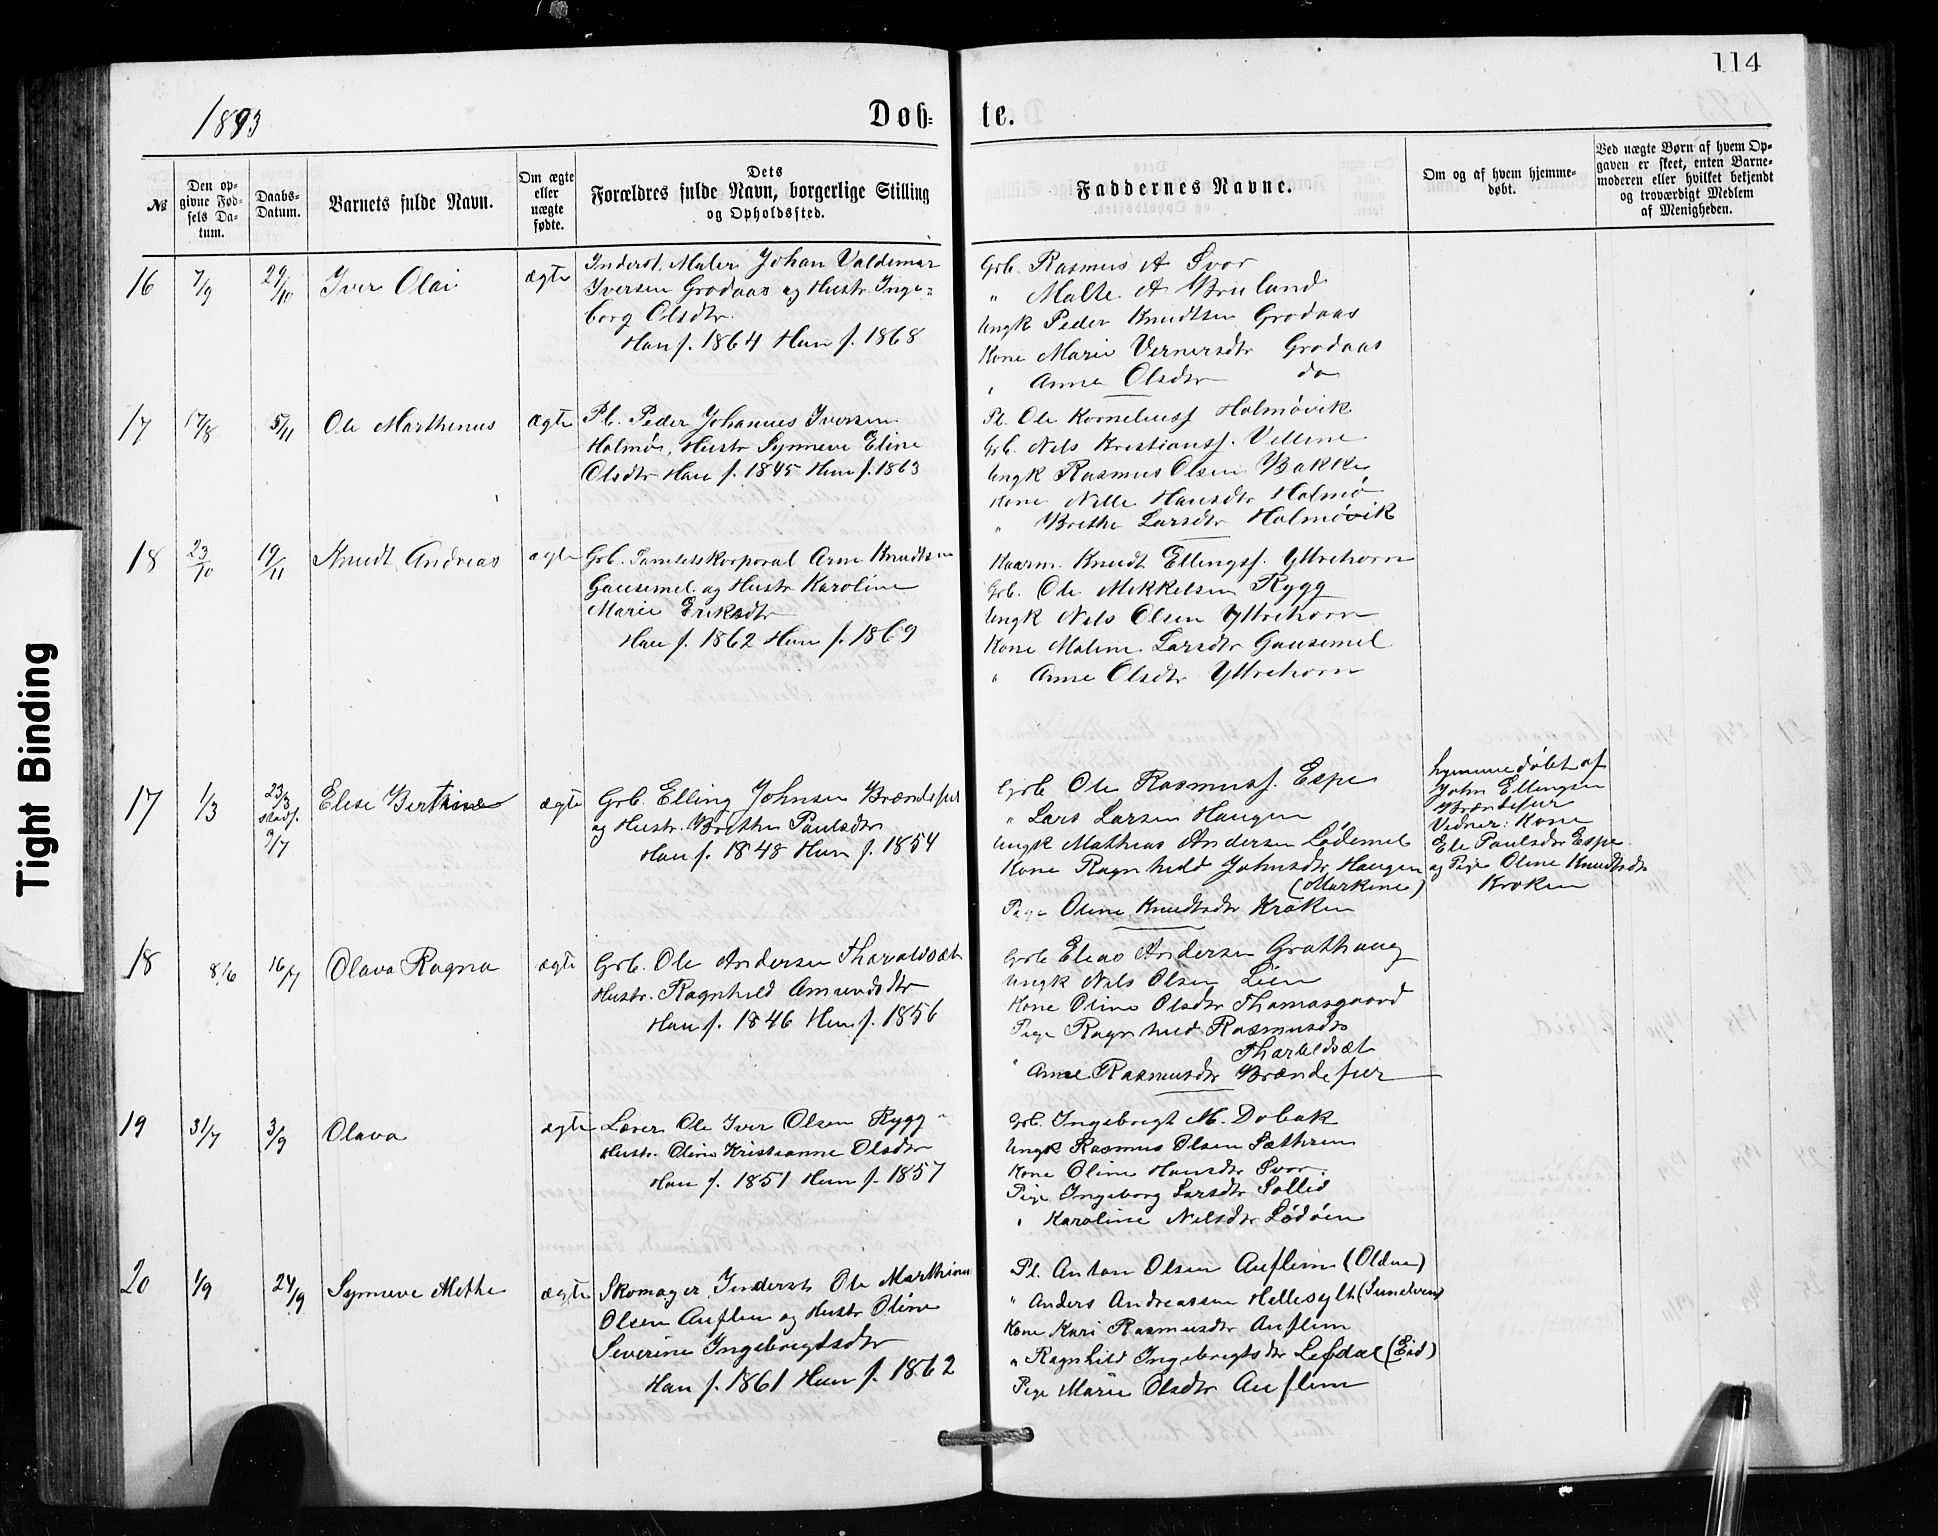 114
1893
Døb-
te.
№
Den op-
givne Fød-
sels Da-
tum.
Daabs-
Datum.
Barnets fulde Navn.
Om ægte
eller
uægte
fødte.
Dets
Forældres fulde Navn, borgerlige Stilling
og Opholdssted.
Faddernes Navne.
Om og af hvem hjemme-
døbt.
Ved uægte Børn af hvem Op-
gaven er skeet, enten Barne-
moderen eller hvilket bekjendt
og troværdigt Medlem
af Menigheden.
16 7/9 29/10 Iver Olai ægte
Inderst, Maler Johan Valdemar
Iversen Grodaas og Hustr. Inge-
borg Olsdtr.
Han f. 1864 Hun f. 1868
Grb. Rasmus A Svor
" Malte A
Ungk Peder Knudtsen Grodaas
Kone Marie Vernersdtr Grodaas
" Anne Olsdtr do
17 17/8 5/11 Ole Marthinus ægte
Pl. Peder Johannes Iversen
Holmø, Hustr Synneve Eline
Olsdtr Han f. 1845 Hun f. 1863
Pl. Ole Korneliuss Holmøvik
Grb. Nils Kristianss. Vellene
Ungk Rasmus Olsen Bakke
Kone Nille Hansdtr Holmø
" Brithe Larsdtr Holmøvik
18 23/10 19/11 Knudt Andreas ægte
Grb. Arne Knudtsen
Gausemel og Hustr Karoline
Marie Eriksdtr
Han f. 1862 Hun f. 1869
Kaarm. Knudt Ellingss. Yttrehorn
Grb. Ole Mikkelsen Rygg
Ungk Nils Olsen Yttrehorn
Kone Malene Larsdtr Gausemel
" Anne Olsdtr Yttrehorn
17 1/3 23/3
stadf.
9/7
Elise Bertine ægte
Grb. Elling Johnsen Brændefur
og Hustr. Brithe Paulsdtr
Han f. 1848 Hun f. 1854
Grb Ole Rasmuss. Espe
" Lars Larsen Haugen
Ungk Mathias Andersen Lødemel
Kone Ragnhild Johnsdtr Haugen
(Markene)
Pige Oline Knudtsdtr Kroken
hjemmedøbt af
John Ellingsen
Brændefur
Vidner: Kone
Ele Paulsdtr Espe
og Pige Oline Knudtsdtr
Kroken
18 8/6 16/7 Olava Ragna ægte
Grb. Ole Andersen Tharaldsæt
Hustr. Ragnhild Amundsdtr
Han f. 1846 Hun f. 1856
Grb Elias Andersen Grathaug
Ungk Nils Olsen Lien
Kone Oline Olsdtr Thomasgaard
Pige Ragnhild Rasmusdtr
Tharaldsæt
" Anne Rasmusdtr Brændefur
19 31/7 3/9 Olava ægte
Lærer Ole Iver Olsen Rygg
Hustr. Oline Kristianne Olsdtr
Han f. 1851 Hun f. 1857
Grb. Ingebrigt M. Dobak
Ungk Rasmus Olsen Sæthren
Kone Oline Hansdtr Svor.
Pige Ingeborg Larsdtr Sollid
" Karoline Nilsdtr Lødøen
20 1/9 24/9 Synneve Methe ægte
Skomager, Inderst, Ole Marthinus
Olsen Auflem og Hustr Oline
Severine Ingebrigtsdtr
Han f. 1861 Hun f. 1862
Pl. Anton Olsen Auflem (Olden)
" Anders Andreassen Hellesylt (Sunelven)
Kone Kari Rasmusdtr Auflem
" Ragnhild Ingebrigtsdtr Lefdal (Eid)
Pige Marie Olsdtr Auflem
Tight Binding